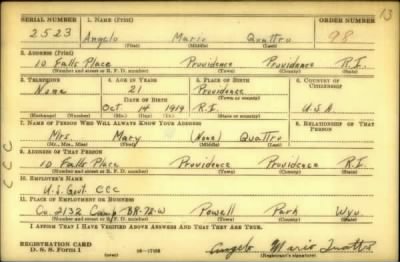 SERIAL NUMBER 1. NAME (Print) ORDER NUMBER 13
2523 Angelo Mario Quattro 98
(First) (Middle) (Last)
2. ADDRESS (Print)
10 Falls Place Providence Providence R.I.
(Number and street or R. F. D. number) (Town) (County) (State)
3. TELEPHONE 4. AGE IN YEARS 5. PLACE OF BIRTH 6. COUNTRY OF CITIZENSHIP
None 21 Providence
DATE OF BIRTH (Town or county)
Oct 14 1919 R.I. U.S.A
(Exchange) (Number) (Mo.) (Day) (Yr.) (State or country)
7. NAME OF PERSON WHO WILL ALWAYS KNOW YOUR ADDRESS 8. RELATIONSHIP OF THAT PERSON
Mrs. Mary (None) Quattro
(Mr., Mrs., Miss) (First) (Middle) (Last)
9. ADDRESS OF THAT PERSON
10 Falls Place Providence Providence R.I.
(Number and street or R. F. D. number) (Town) (County) (State)
10. EMPLOYER'S NAME
U.S. Govt. CCC
11. PLACE OF EMPLOYMENT OR BUSINESS
Co. 2132 Camp BR-72-W Powell Park Wyo.
(Number and street or R. F. D. number) (Town) (County) (State)
I AFFIRM THAT I HAVE VERIFIED ABOVE ANSWERS AND THAT THEY ARE TRUE.
REGISTRATION CARD
D. S. S. Form 1 (over) Angelo Mario Quattro
(Registrant's signature)
CCC